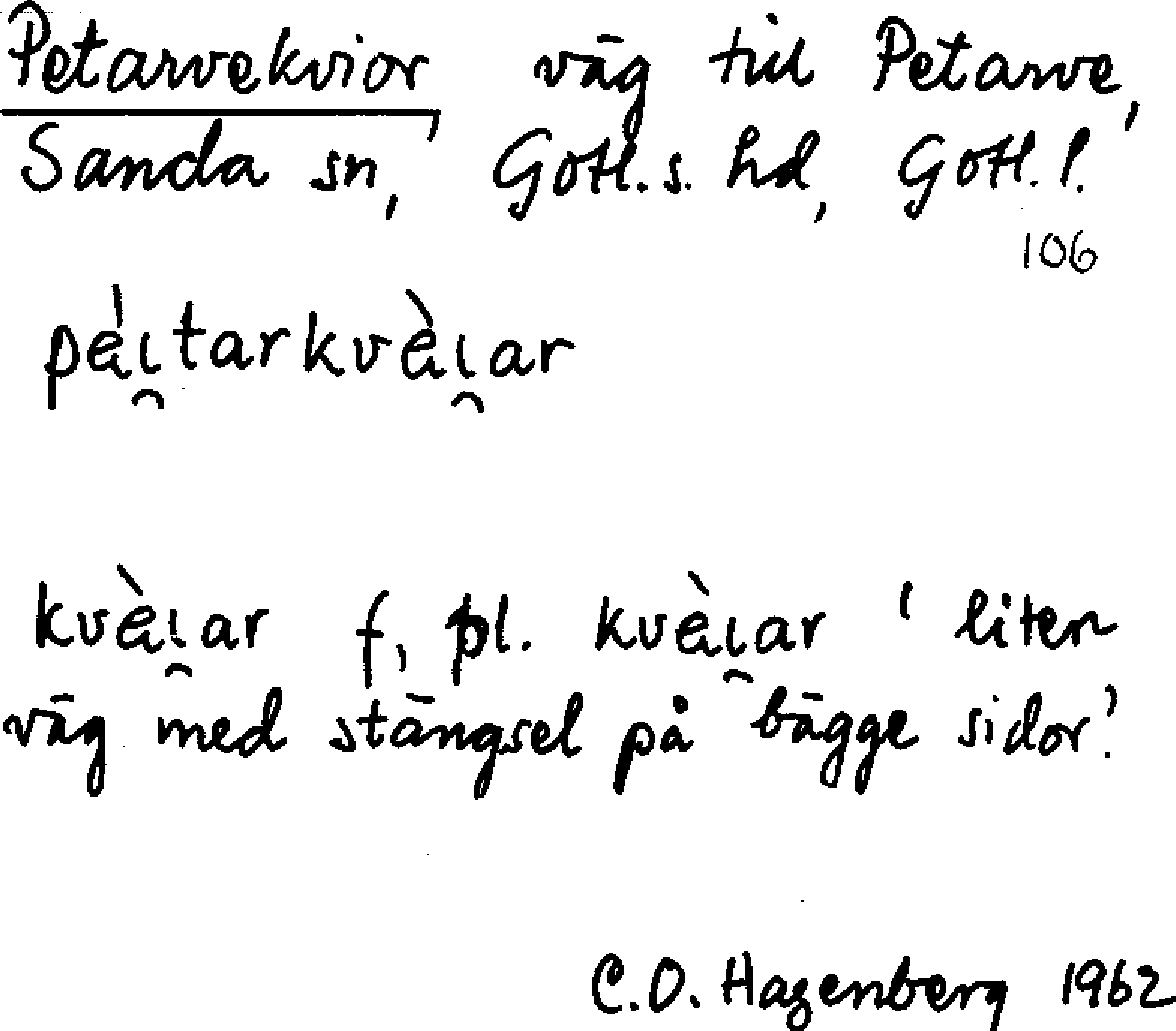 Petarvekvior, väg till Petarve,
Sanda sn, Gotl. s. hd, Gotl. l.
106
pèɩ̯tarkvèɩ̯ar
kvèɩ̯ar f, pl. kvèɩ̯ar 'liten
väg med stängsel på bägge sidor'.
C.O. Hagenberg 1962